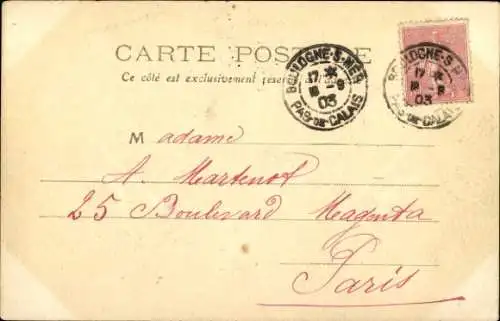 CARTE POSTALE
Ce côté est exclusivement réservé
BOULOGNE-S-MER
17 *
18 - 9
03
PAS-DE-CALAIS
BOULOGNE-S-M
17 *
18 - 9
03
PAS-DE-CALAIS
Madame
A. Martenot
25 Boulevard Magenta
Paris